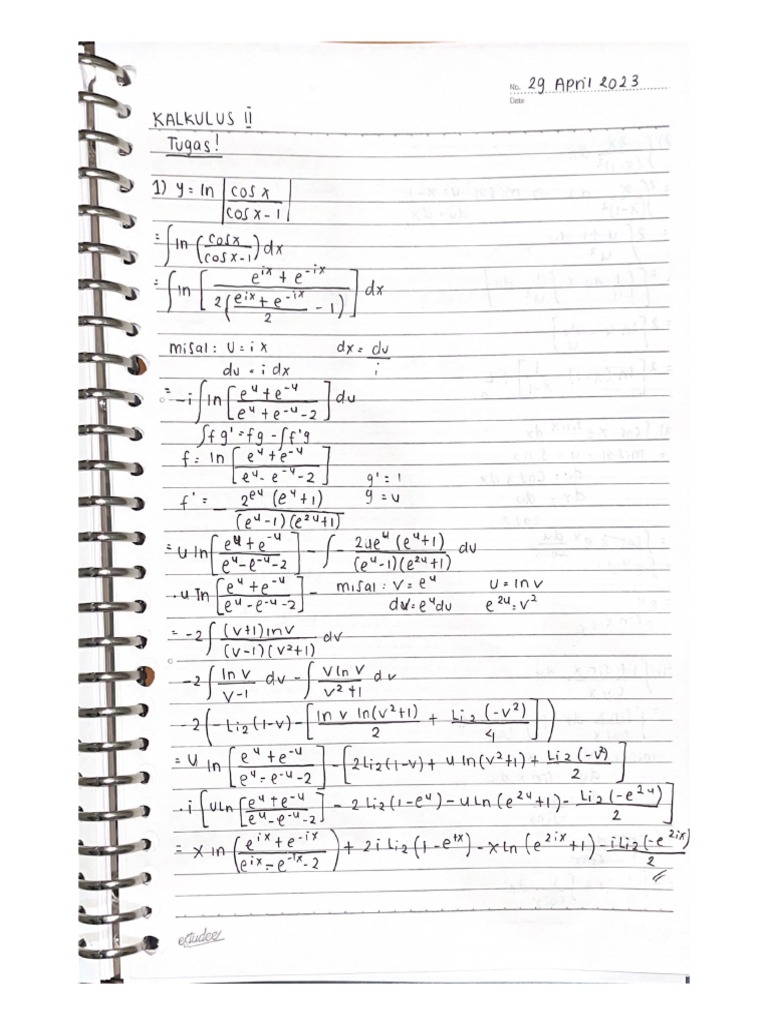 No. 29 April 2023
Date
KALKULUS II
Tugas!
1) y = ln |cos x / cos x - 1|
= ∫ ln (cos x / cos x - 1) dx
= ∫ ln [e^ix + e^-ix / 2(e^ix + e^-ix / 2 - 1)] dx
misal : u = ix   dx = du / i
du = i dx
= -i ∫ ln [e^u + e^-u / e^u + e^-u - 2] du
∫ f g' = fg - ∫ f'g
f = ln [e^u + e^-u / e^u - e^-u - 2]   g' = 1
f' = - 2e^u (e^u + 1) / (e^u - 1)(e^2u + 1)   g = u
= u ln [e^u + e^-u / e^u - e^-u - 2] - ∫ - 2ue^u (e^u + 1) / (e^u - 1)(e^2u + 1) du
. u ln [e^u + e^-u / e^u - e^-u - 2] -   misal : v = e^u   u = ln v
dv = e^u du   e^2u = v^2
= -2 ∫ (v+1) ln v / (v-1)(v^2+1) dv
-2 ∫ ln v / v-1 dv - ∫ v ln v / v^2+1 dv
-2 (-Li2 (1-v) - [ln v ln(v^2+1) / 2 + Li2 (-v^2) / 4])
= u ln [e^u + e^-u / e^u - e^-u - 2] - [2Li2 (1-v) + u ln (v^2+1) + Li2 (-v^2) / 2]
. i [u ln [e^u + e^-u / e^u - e^-u - 2] - 2 Li2 (1-e^u) - u ln (e^2u + 1) - Li2 (-e^2u) / 2]
= x ln (e^ix + e^-ix / e^ix - e^-ix - 2) + 2i Li2 (1-e^ix) - x ln (e^2ix + 1) - i Li2 (-e^2ix) / 2
etudee